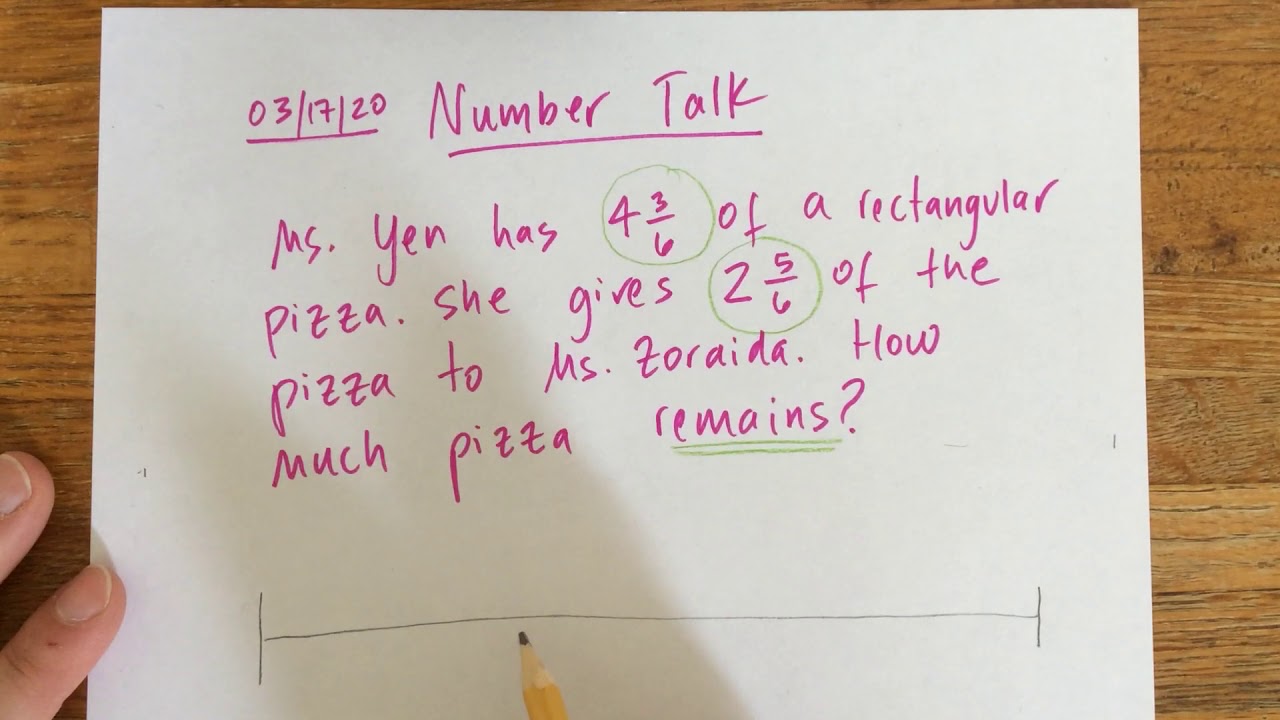 03/17/20 Number Talk
Ms. Yen has 4 3/6 of a rectangular
pizza. She gives 2 5/6 of the
pizza to Ms. Zoraida. How
much pizza remains?